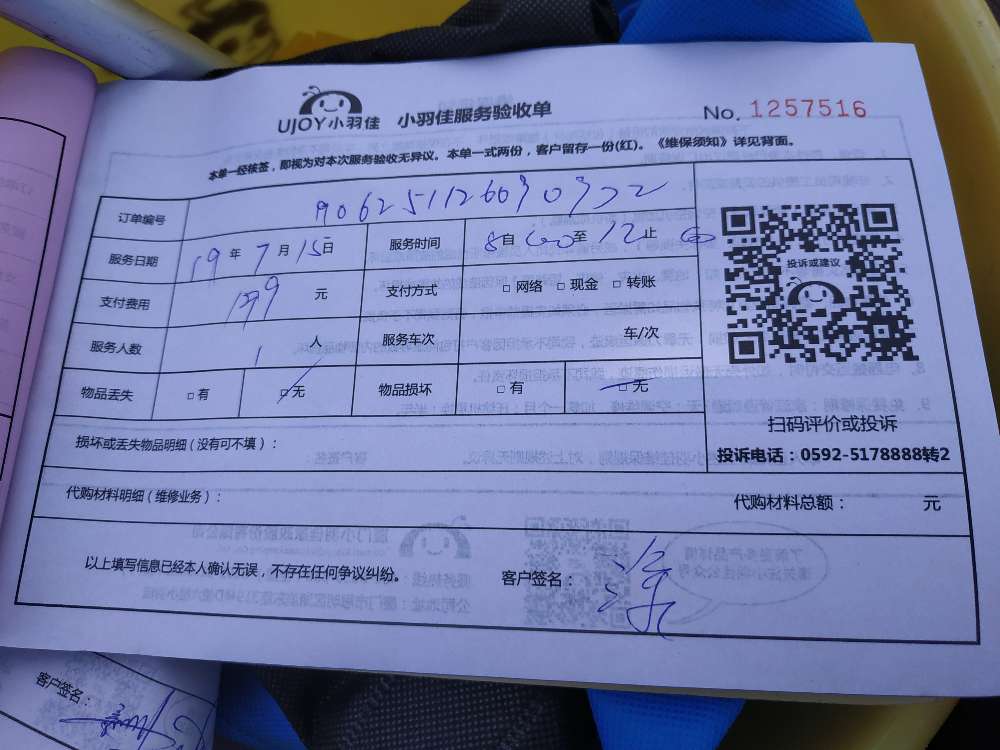 UJOY小羽佳 小羽佳服务验收单 No. 1257516
本单一经核签，即视为对本次服务验收无异议。本单一式两份，客户留存一份(红)。《维保须知》详见背面。
订单编号
服务日期 19年7月15日 服务时间 8自00至12止
支付费用 199元 支付方式 □网络 □现金 □转账
服务人数 1人 服务车次 车/次
物品丢失 □有 □无 物品损坏 □有 □无
投诉或建议
扫码评价或投诉
投诉电话：0592-5178888转2
损坏或丢失物品明细（没有可不填）：
代购材料明细（维修业务）： 代购材料总额： 元
以上填写信息已经本人确认无误，不存在任何争议纠纷。 客户签名：
客户签名：